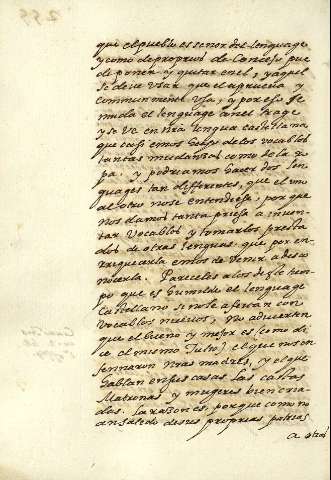 que el pueblo es señor del lenguage
y como de proprios de Concejo pue
de poner y quitar en el, y aquel
se deve usar que el aprueva y
communmente usa, y por eso se
muda el lenguage como el trage
y se ve en nra lengua castellana
que casi emos hecho de los vocablos
tantas mudanças como de la ro
pa. y podriamos hacer dos len
guages tan differentes, que el uno
al otro no se entendiese, porque
nos damos tanta priesa a inven
tar vocablos y tomarlos presta
dos de otras lenguas que por en
rriquecerla emos de venir a desco
nocerla. Pareceles a los deste tiem
po que es humilde el lenguage
Castellano si no le afeitan con
vocablos nuevos, no advierten
que el bueno y mejor es (como di
ce el mismo Tulio) el que nos en
señaron nras madres, y el que
hablan en sus casas las castas
Matronas y mugeres bien cria
das. La razon es, porque como no
an salido de sus proprias patrias
a otras